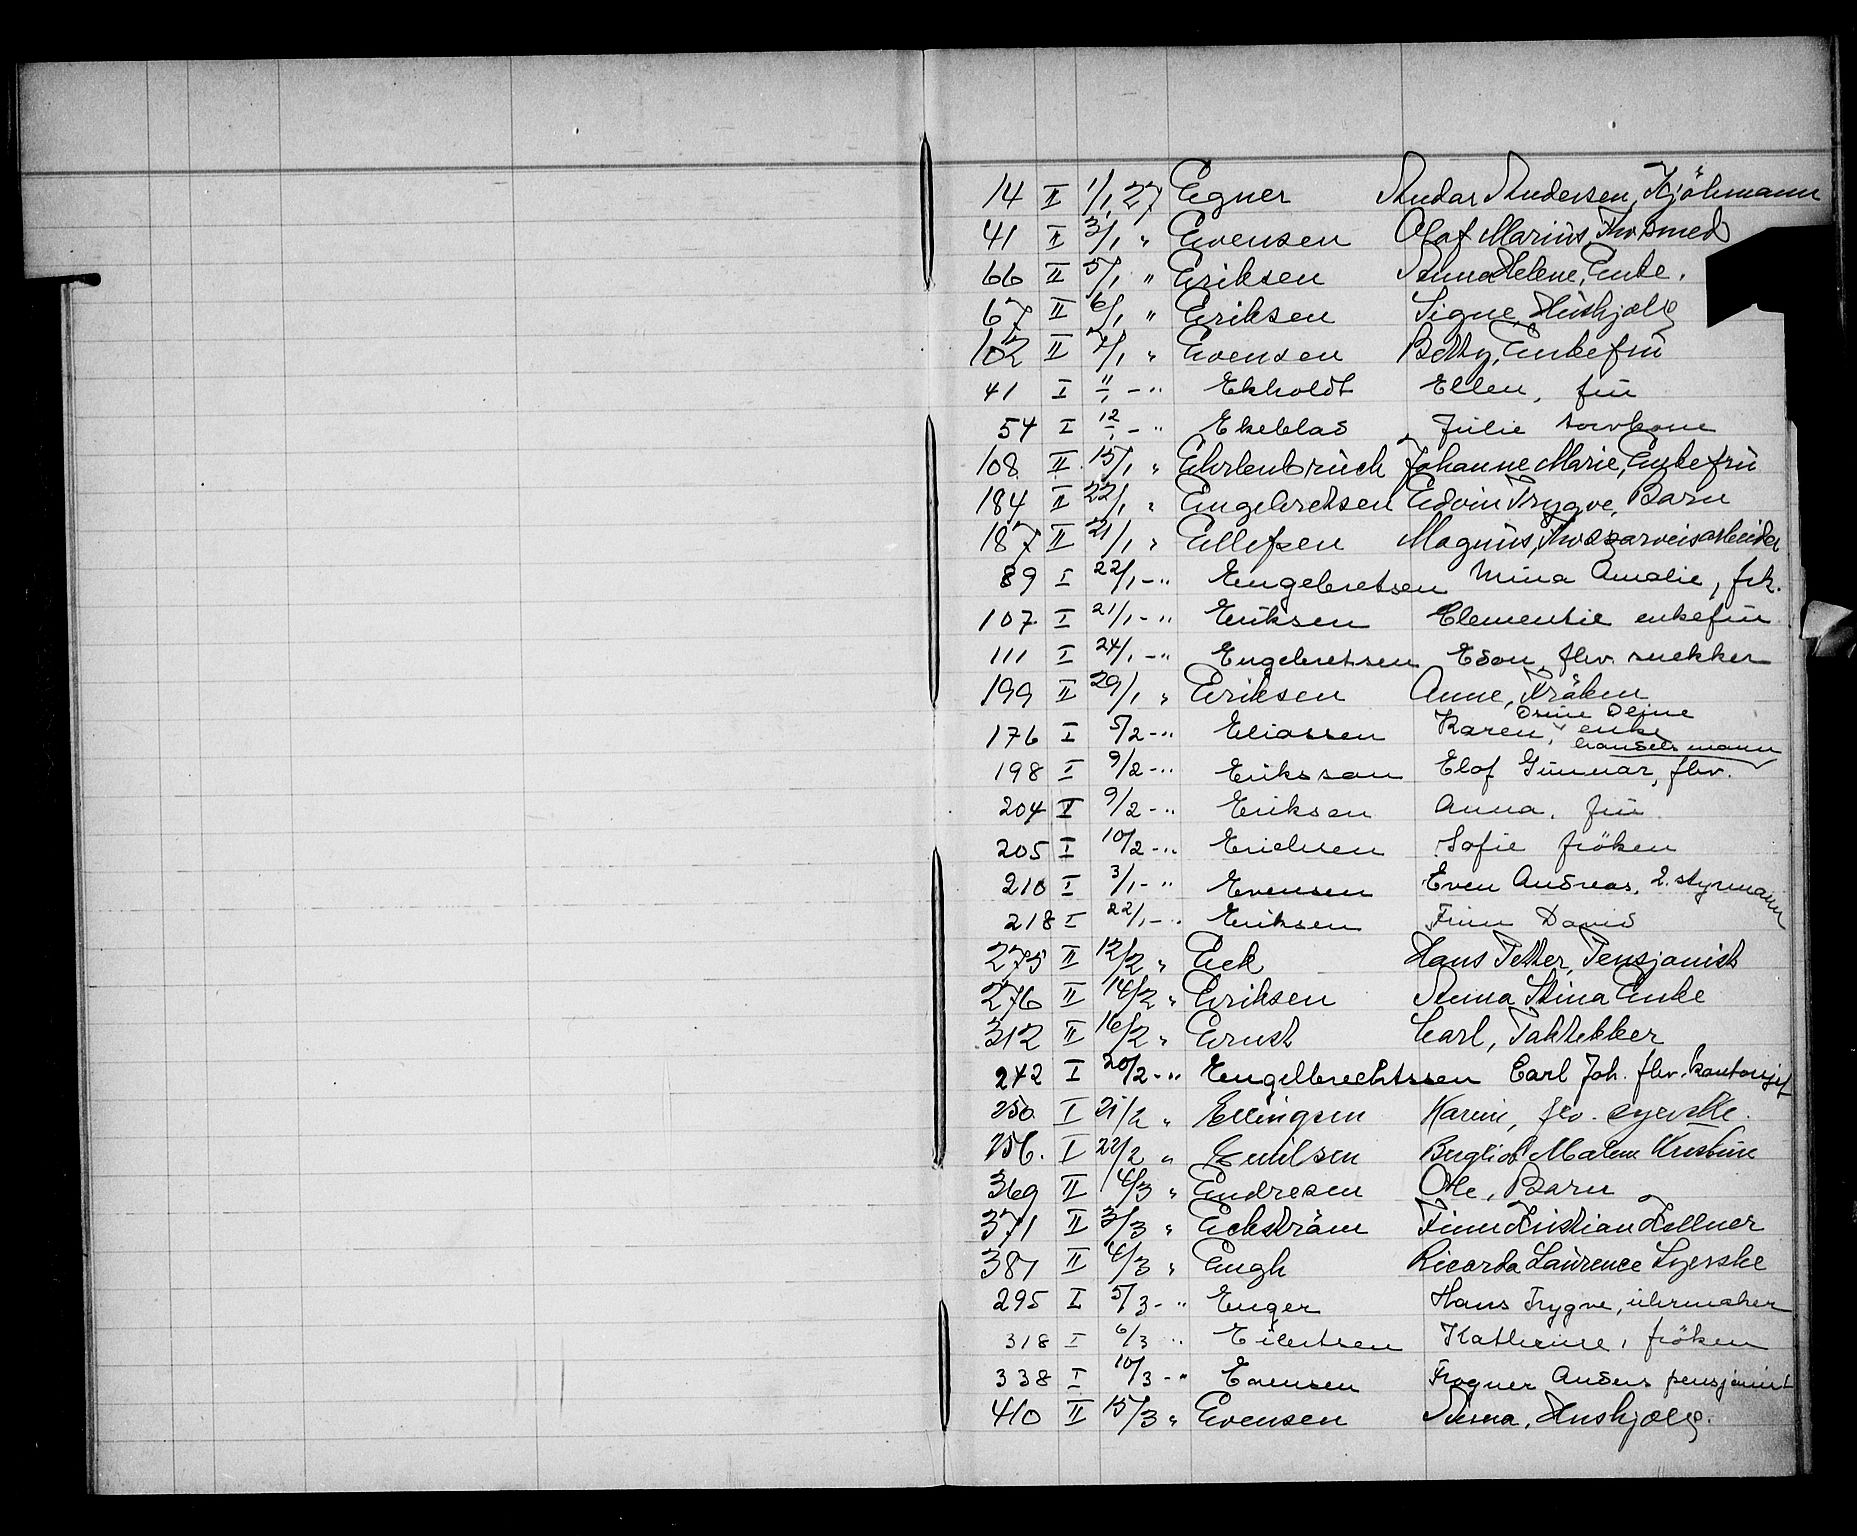 14 II 1/1 27 Egner Andar Andersen, Kjöbmann
41 II 3/1 " Evensen Olaf Marius, Fhv. smed
66 II 5/1 " Eriksen Anna Helene, Enke.
67 II 6/1 " Eriksen Signe, Hushjelp
102 II 7/1 " Evensen Betty, Enkefru
41 I 11/1 - " Ekholdt Ellen, fru
54 I 12/1 - " Ekeblad Julie
108 II 15/1 " Ehrlenbruch Johanne Marie, Enkefru
184 II 22/1 " Engebretsen Edvin Trygve, Barn
187 II 21/1 " Ellefsen Magnus, Fhv.
89 I 22/1 - " Engebretsen Mina Amalie, frk.
107 I 21/1 - " Eriksen Clementie enkefru
111 I 24/1 - " Engebretsen Edon, fhv. snekker
199 II 29/1 " Eriksen Anne, Fröken
176 I 5/2 - " Eliassen Karen, Osine Oline enke
198 I 9/2 - " Eriksson Elof Gunnar, fhv. handelsmann
204 I 9/2 - " Eriksen Anna, fru
205 I 10/2 - " Erichsen Sofie fröken
210 I 3/1 - " Evensen Even Andreas, 2. styrmann
218 I 22/1 - " Eriksen Finn David
275 II 12/2 " Eek Hans Petter, Pensjonist
276 II 14/2 " Eriksen Anna Stina Enke
312 II 16/2 " Ernst Carl, Taktekker
242 I 20/2 - " Engelbrechtssen Carl Joh. fhv. kontorsjef
250 I 21/2 " Ellingsen Karin, fhv. syerske.
256. I 22/2 " Emilsen Malene Kristine
369 II 4/3 " Endresen Ole, Barn
371 II 3/3 " Eckström Finn Kristian Kellner
387 II 4/3 " Engh Ricarda Laurence Syerske
295 I 5/3 - " Enger Hans Trygve, uhrmaker
318 I 6/3 " Eilertsen Kathrine, fröken
338 I 10/3 - " Evensen Frogner Anders pensjonist
410 II 15/3 " Evensen Anna, Hushjelp.